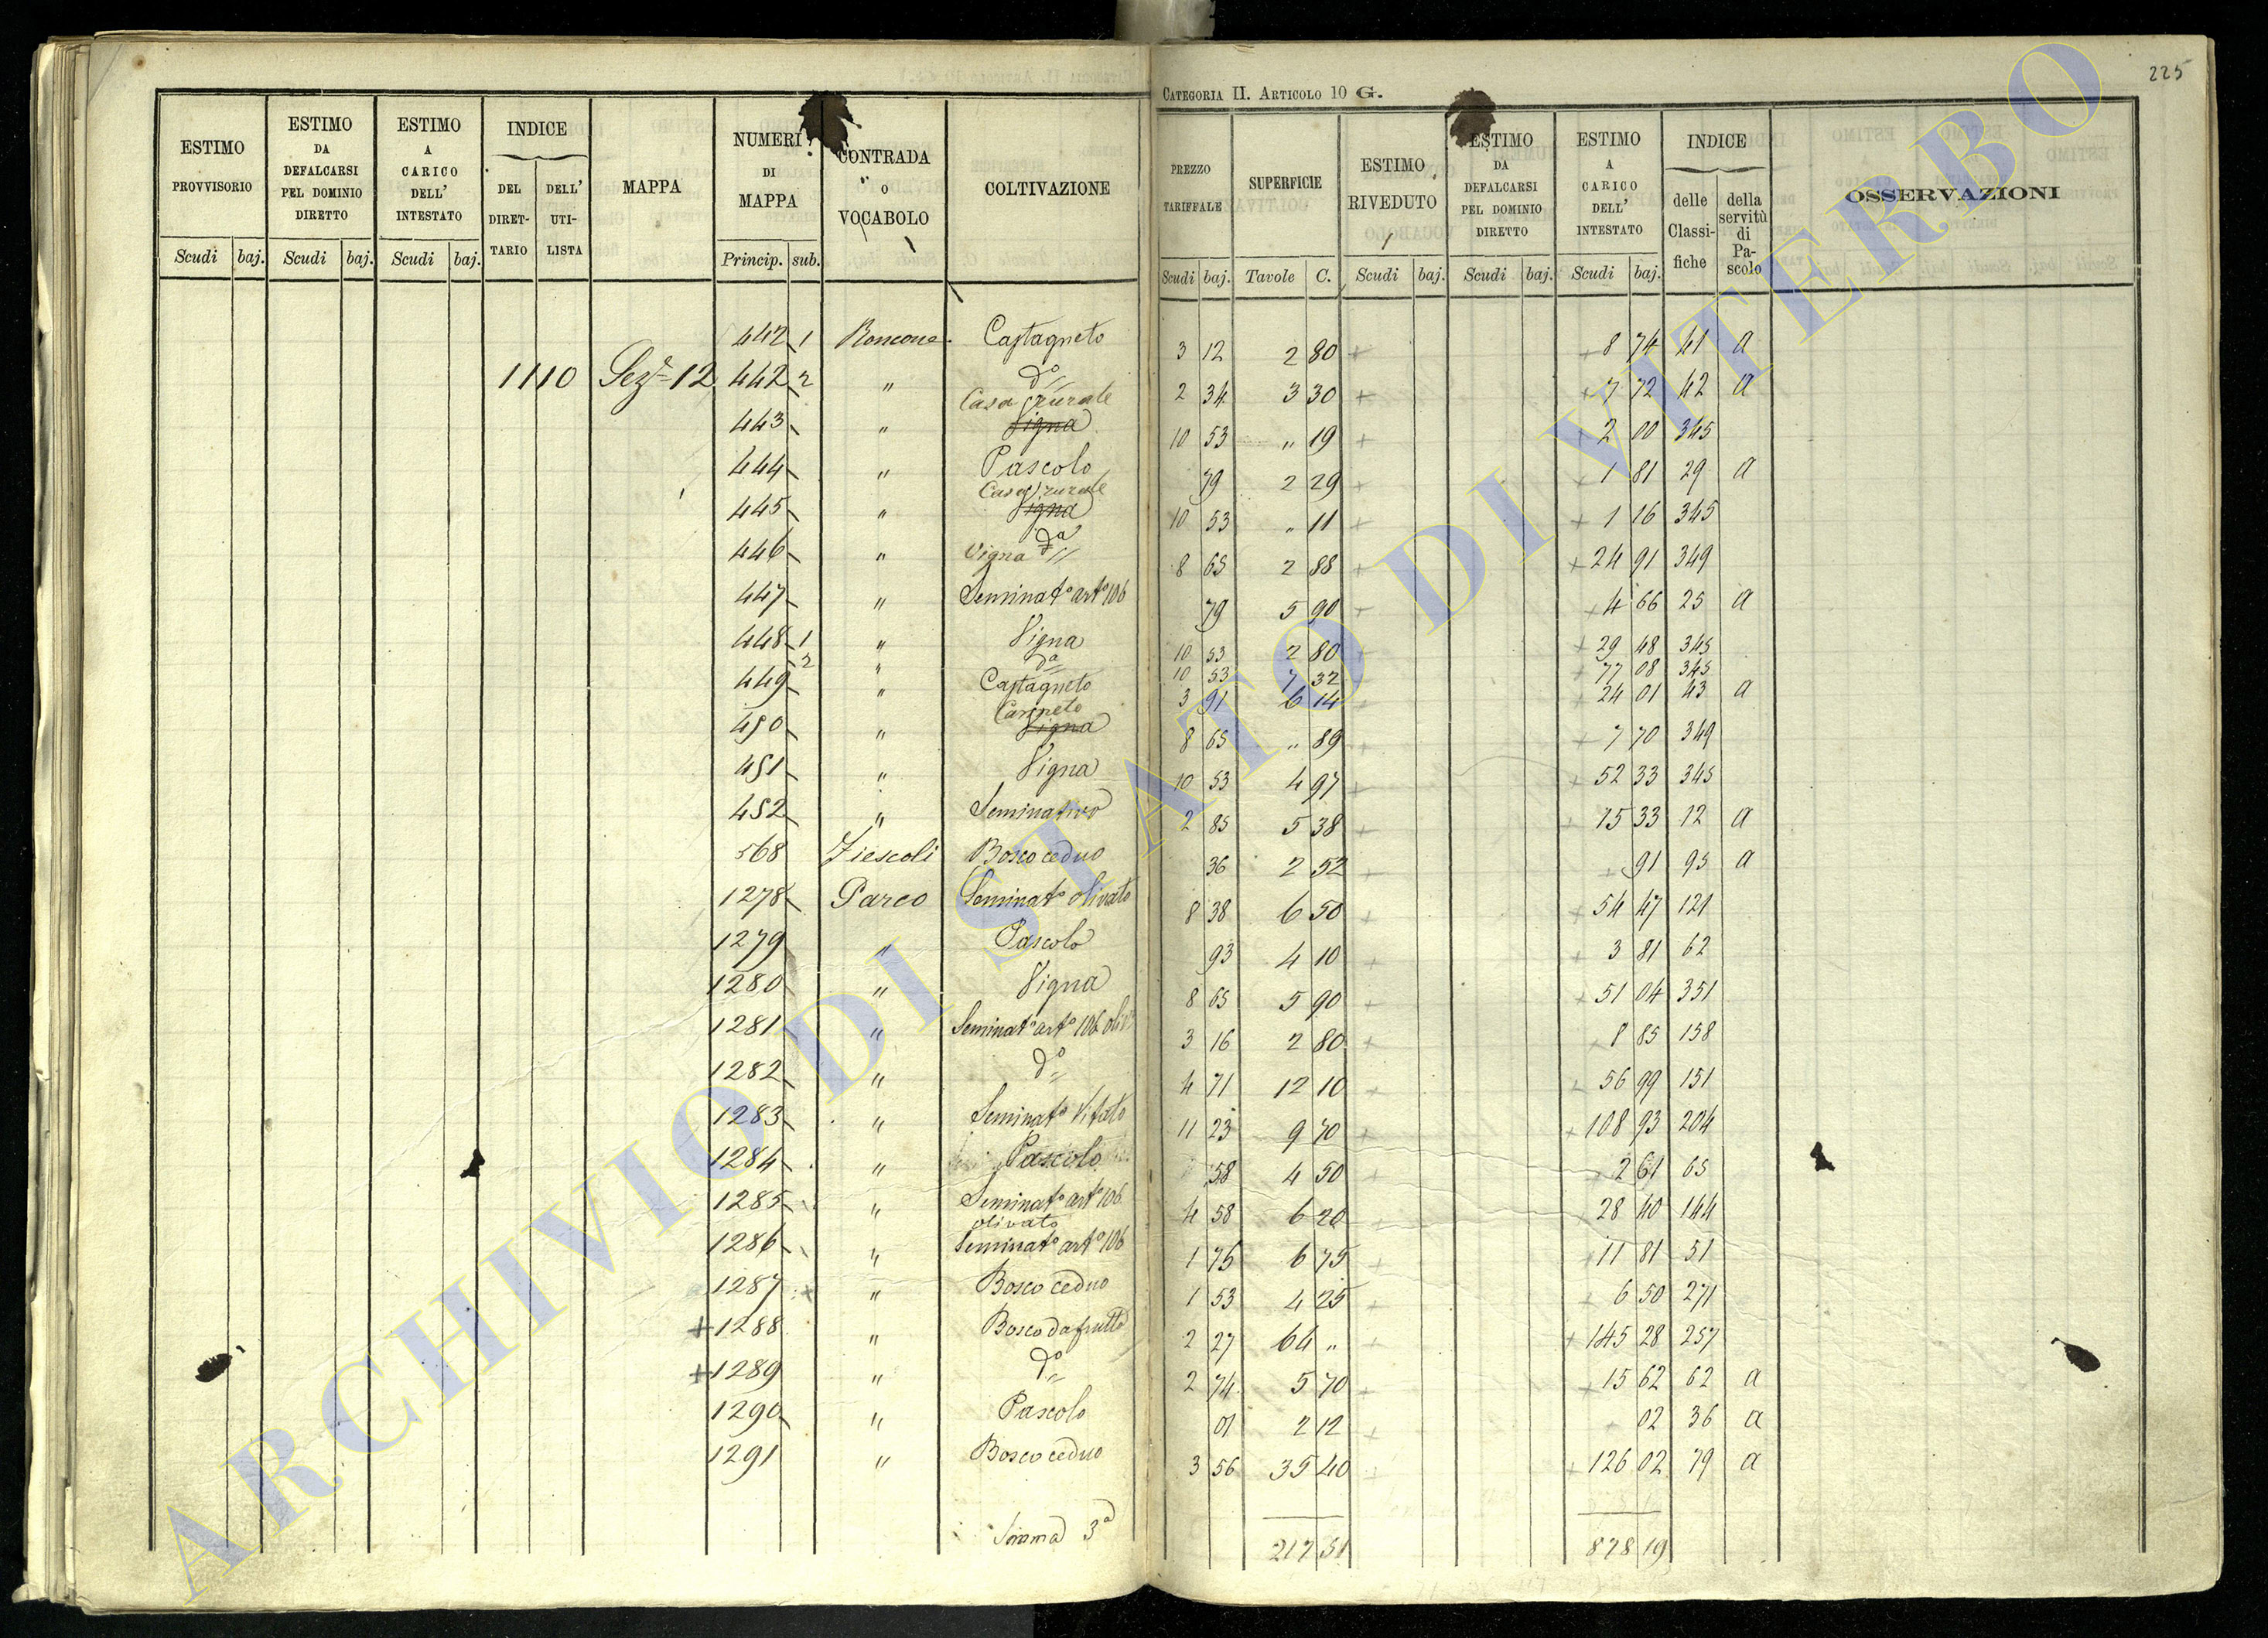 225
CATEGORIA II. ARTICOLO 10 G.
ESTIMO PROVVISORIO | ESTIMO DA DEFALCARSI PEL DOMINIO DIRETTO | ESTIMO A CARICO DELL' INTESTATO | INDICE DEL DIRETTARIO | DELL' UTILISTA | MAPPA | NUMERI DI MAPPA | CONTRADA O VOCABOLO | COLTIVAZIONE | PREZZO TARIFFALE | SUPERFICIE | ESTIMO RIVEDUTO | ESTIMO DA DEFALCARSI PEL DOMINIO DIRETTO | ESTIMO A CARICO DELL' INTESTATO | INDICE delle Classifiche | della servitù di Pascolo | OSSERVAZIONI
Scudi baj. | Scudi baj. | Scudi baj. | Princip. sub. | Scudi baj. | Tavole C. | Scudi baj. | Scudi baj. | Scudi baj.
442 1 Roncone Castagneto 3 12 2 80 + + 8 74 41 a
1110 Sez.e 12 442 2 " do 2 34 3 30 + + 7 72 42 a
443 " Casa rurale Vigna 10 53 " 19 + + 2 00 345
444 " Pascolo 79 2 29 + + 1 81 29 a
445 " Casa rurale Vigna 10 53 " 11 + + 1 16 345
446 " Vigna da 8 65 2 88 + + 24 91 349
447 " Seminato arto 106 79 5 90 + + 4 66 25 a
448 1 " Vigna 10 53 2 80 + + 29 48 345
2 " da 10 53 7 32 + 77 08 345
449 " Castagneto 3 91 6 14 + + 24 01 43 a
450 " Canneto Vigna 8 65 " 89 + + 7 70 349
451 " Vigna 10 53 4 97 + + 52 33 345
452 " Seminativo 2 85 5 38 + + 15 33 12 a
568 Fiescoli Bosco ceduo 36 2 52 + + 91 95 a
1278 Parco Seminato olivato 8 38 6 50 + + 54 47 121
1279 " Pascolo 93 4 10 + + 3 81 62
1280 " Vigna 8 65 5 90 + + 51 04 351
1281 " Seminato arto 106 olivo 3 16 2 80 + + 8 85 158
1282 " do 4 71 12 10 + + 56 99 151
1283 " Seminato Vitato 11 23 9 70 + + 108 93 204
1284 " Pascolo 58 4 50 + 2 61 65
1285 " Seminato arto 106 olivato 4 58 6 20 + 28 40 144
1286 " Seminato arto 106 1 75 6 75 + 11 81 51
1287 " Bosco ceduo 1 53 4 25 + + 6 50 271
+ 1288 " Bosco da frutto 2 27 64 " + + 145 28 257
+ 1289 " do 2 74 5 70 + + 15 62 62 a
1290 " Pascolo 01 2 12 + 02 36 a
1291 " Bosco ceduo 3 56 35 40 + + 126 02 79 a
Somma 3a 217 51 878 19
ARCHIVIO DI STATO DI VITERBO